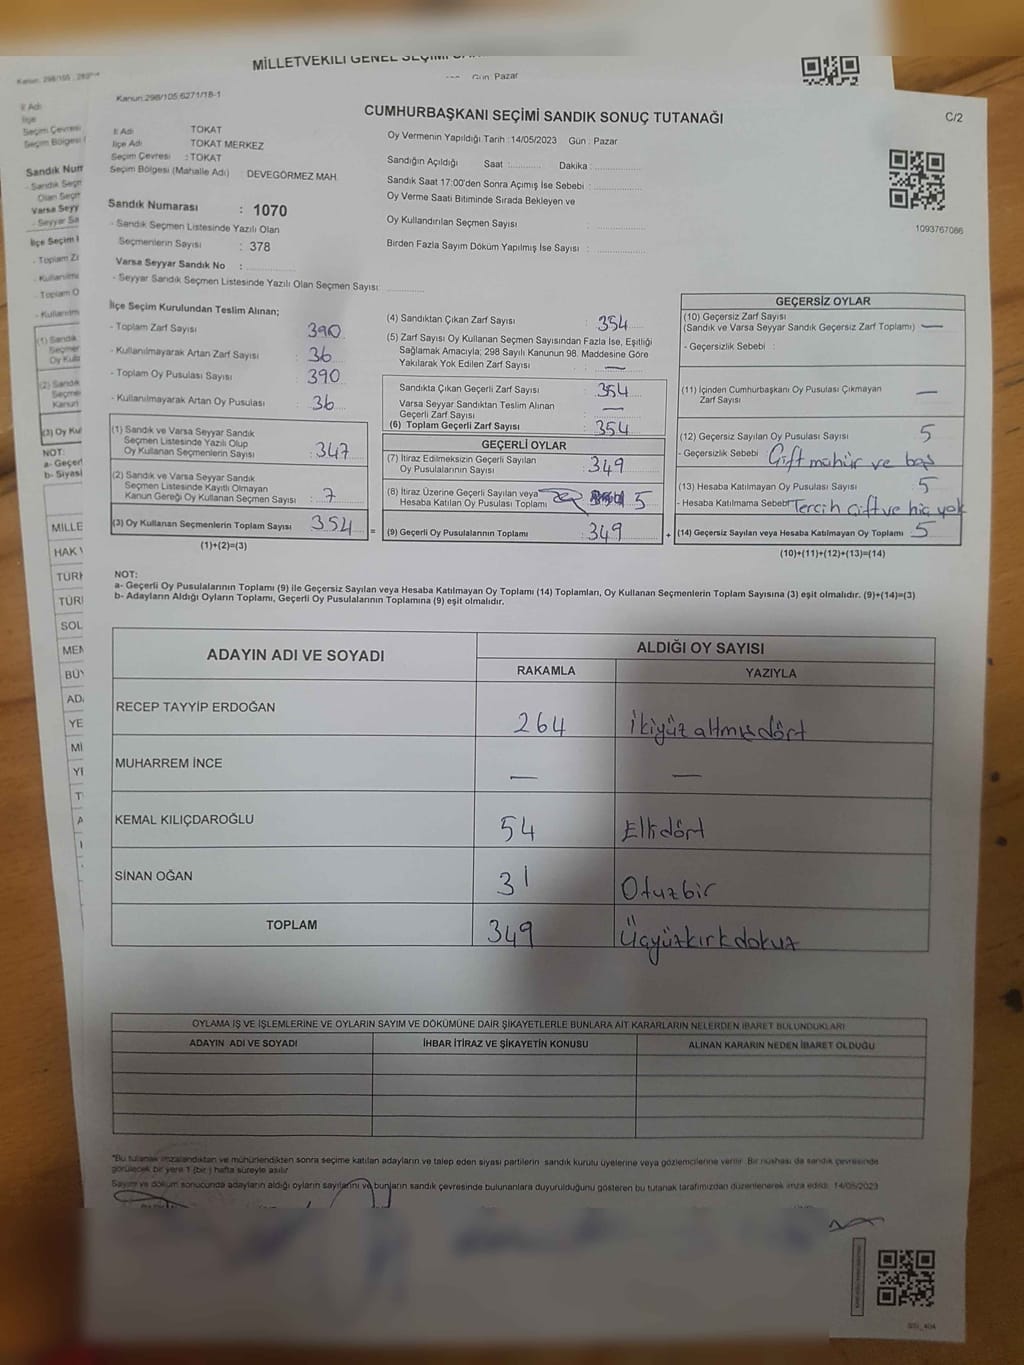 MİLLETVEKİLİ GENEL SEÇİMİ
Gün: Pazar
Kanun:298/105;6271/18-1
CUMHURBAŞKANI SEÇİMİ SANDIK SONUÇ TUTANAĞI
C/2
İl Adı : TOKAT
İlçe Adı : TOKAT MERKEZ
Seçim Çevresi : TOKAT
Seçim Bölgesi (Mahalle Adı) : DEVEGÖRMEZ MAH.
Oy Vermenin Yapıldığı Tarih : 14/05/2023 Gün : Pazar
Sandığın Açıldığı Saat : Dakika :
Sandık Saat 17:00'den Sonra Açımış İse Sebebi :
Oy Verme Saati Bitiminde Sırada Bekleyen ve
Oy Kullandırılan Seçmen Sayısı :
Birden Fazla Sayım Döküm Yapılmış İse Sayısı :
1093767086
Sandık Numarası : 1070
- Sandık Seçmen Listesinde Yazılı Olan
Seçmenlerin Sayısı : 378
Varsa Seyyar Sandık No :
- Seyyar Sandık Seçmen Listesinde Yazılı Olan Seçmen Sayısı:
İlçe Seçim Kurulundan Teslim Alınan;
- Toplam Zarf Sayısı : 390
- Kullanılmayarak Artan Zarf Sayısı : 36
- Toplam Oy Pusulası Sayısı : 390
- Kullanılmayarak Artan Oy Pusulası : 36
(1) Sandık ve Varsa Seyyar Sandık
Seçmen Listesinde Yazılı Olup
Oy Kullanan Seçmenlerin Sayısı : 347
(2) Sandık ve Varsa Seyyar Sandık
Seçmen Listesinde Kayıtlı Olmayan
Kanun Gereği Oy Kullanan Seçmen Sayısı : 7
(3) Oy Kullanan Seçmenlerin Toplam Sayısı : 354 =
(1)+(2)=(3)
(4) Sandıktan Çıkan Zarf Sayısı : 354
(5) Zarf Sayısı Oy Kullanan Seçmen Sayısından Fazla İse, Eşitliği
Sağlamak Amacıyla; 298 Sayılı Kanunun 98. Maddesine Göre
Yakılarak Yok Edilen Zarf Sayısı : —
Sandıkta Çıkan Geçerli Zarf Sayısı : 354
Varsa Seyyar Sandıktan Teslim Alınan
Geçerli Zarf Sayısı : —
(6) Toplam Geçerli Zarf Sayısı : 354
GEÇERLİ OYLAR
(7) İtiraz Edilmeksizin Geçerli Sayılan
Oy Pusulalarının Sayısı : 349
(8) İtiraz Üzerine Geçerli Sayılan veya
Hesaba Katılan Oy Pusulası Toplamı 5
(9) Geçerli Oy Pusulalarının Toplamı : 349 +
GEÇERSİZ OYLAR
(10) Geçersiz Zarf Sayısı
(Sandık ve Varsa Seyyar Sandık Geçersiz Zarf Toplamı) : —
- Geçersizlik Sebebi :
(11) İçinden Cumhurbaşkanı Oy Pusulası Çıkmayan
Zarf Sayısı —
(12) Geçersiz Sayılan Oy Pusulası Sayısı 5
- Geçersizlik Sebebi : Çift mühür ve boş
(13) Hesaba Katılmayan Oy Pusulası Sayısı 5
- Hesaba Katılmama Sebebi Tercih çift ve hiç yok
(14) Geçersiz Sayılan veya Hesaba Katılmayan Oy Toplamı 5
(10)+(11)+(12)+(13)=(14)
NOT:
a- Geçerli Oy Pusulalarının Toplamı (9) ile Geçersiz Sayılan veya Hesaba Katılmayan Oy Toplamı (14) Toplamları, Oy Kullanan Seçmenlerin Toplam Sayısına (3) eşit olmalıdır. (9)+(14)=(3)
b- Adayların Aldığı Oyların Toplamı, Geçerli Oy Pusulalarının Toplamına (9) eşit olmalıdır.
ADAYIN ADI VE SOYADI
ALDIĞI OY SAYISI
RAKAMLA YAZIYLA
RECEP TAYYİP ERDOĞAN 264 İkiyüz altmışdört
MUHARREM İNCE — —
KEMAL KILIÇDAROĞLU 54 Ellidört
SİNAN OĞAN 31 Otuzbir
TOPLAM 349 Üçyüzkırkdokuz
OYLAMA İŞ VE İŞLEMLERİNE VE OYLARIN SAYIM VE DÖKÜMÜNE DAİR ŞİKAYETLERLE BUNLARA AİT KARARLARIN NELERDEN İBARET BULUNDUKLARI
ADAYIN ADI VE SOYADI İHBAR İTİRAZ VE ŞİKAYETİN KONUSU ALINAN KARARIN NEDEN İBARET OLDUĞU
*Bu tutanak imzalandıktan ve mühürlendikten sonra seçime katılan adayların ve talep eden siyasi partilerin sandık kurulu üyelerine veya gözlemcilerine verilir. Bir nüshası da sandık çevresinde
görülecek bir yere 1 (bir) hafta süreyle asılır.
Sayım ve döküm sonucunda adayların aldığı oyların sayılarını ve bunların sandık çevresinde bulunanlara duyurulduğunu gösteren bu tutanak tarafımızdan düzenlenerek imza edildi. 14/05/2023